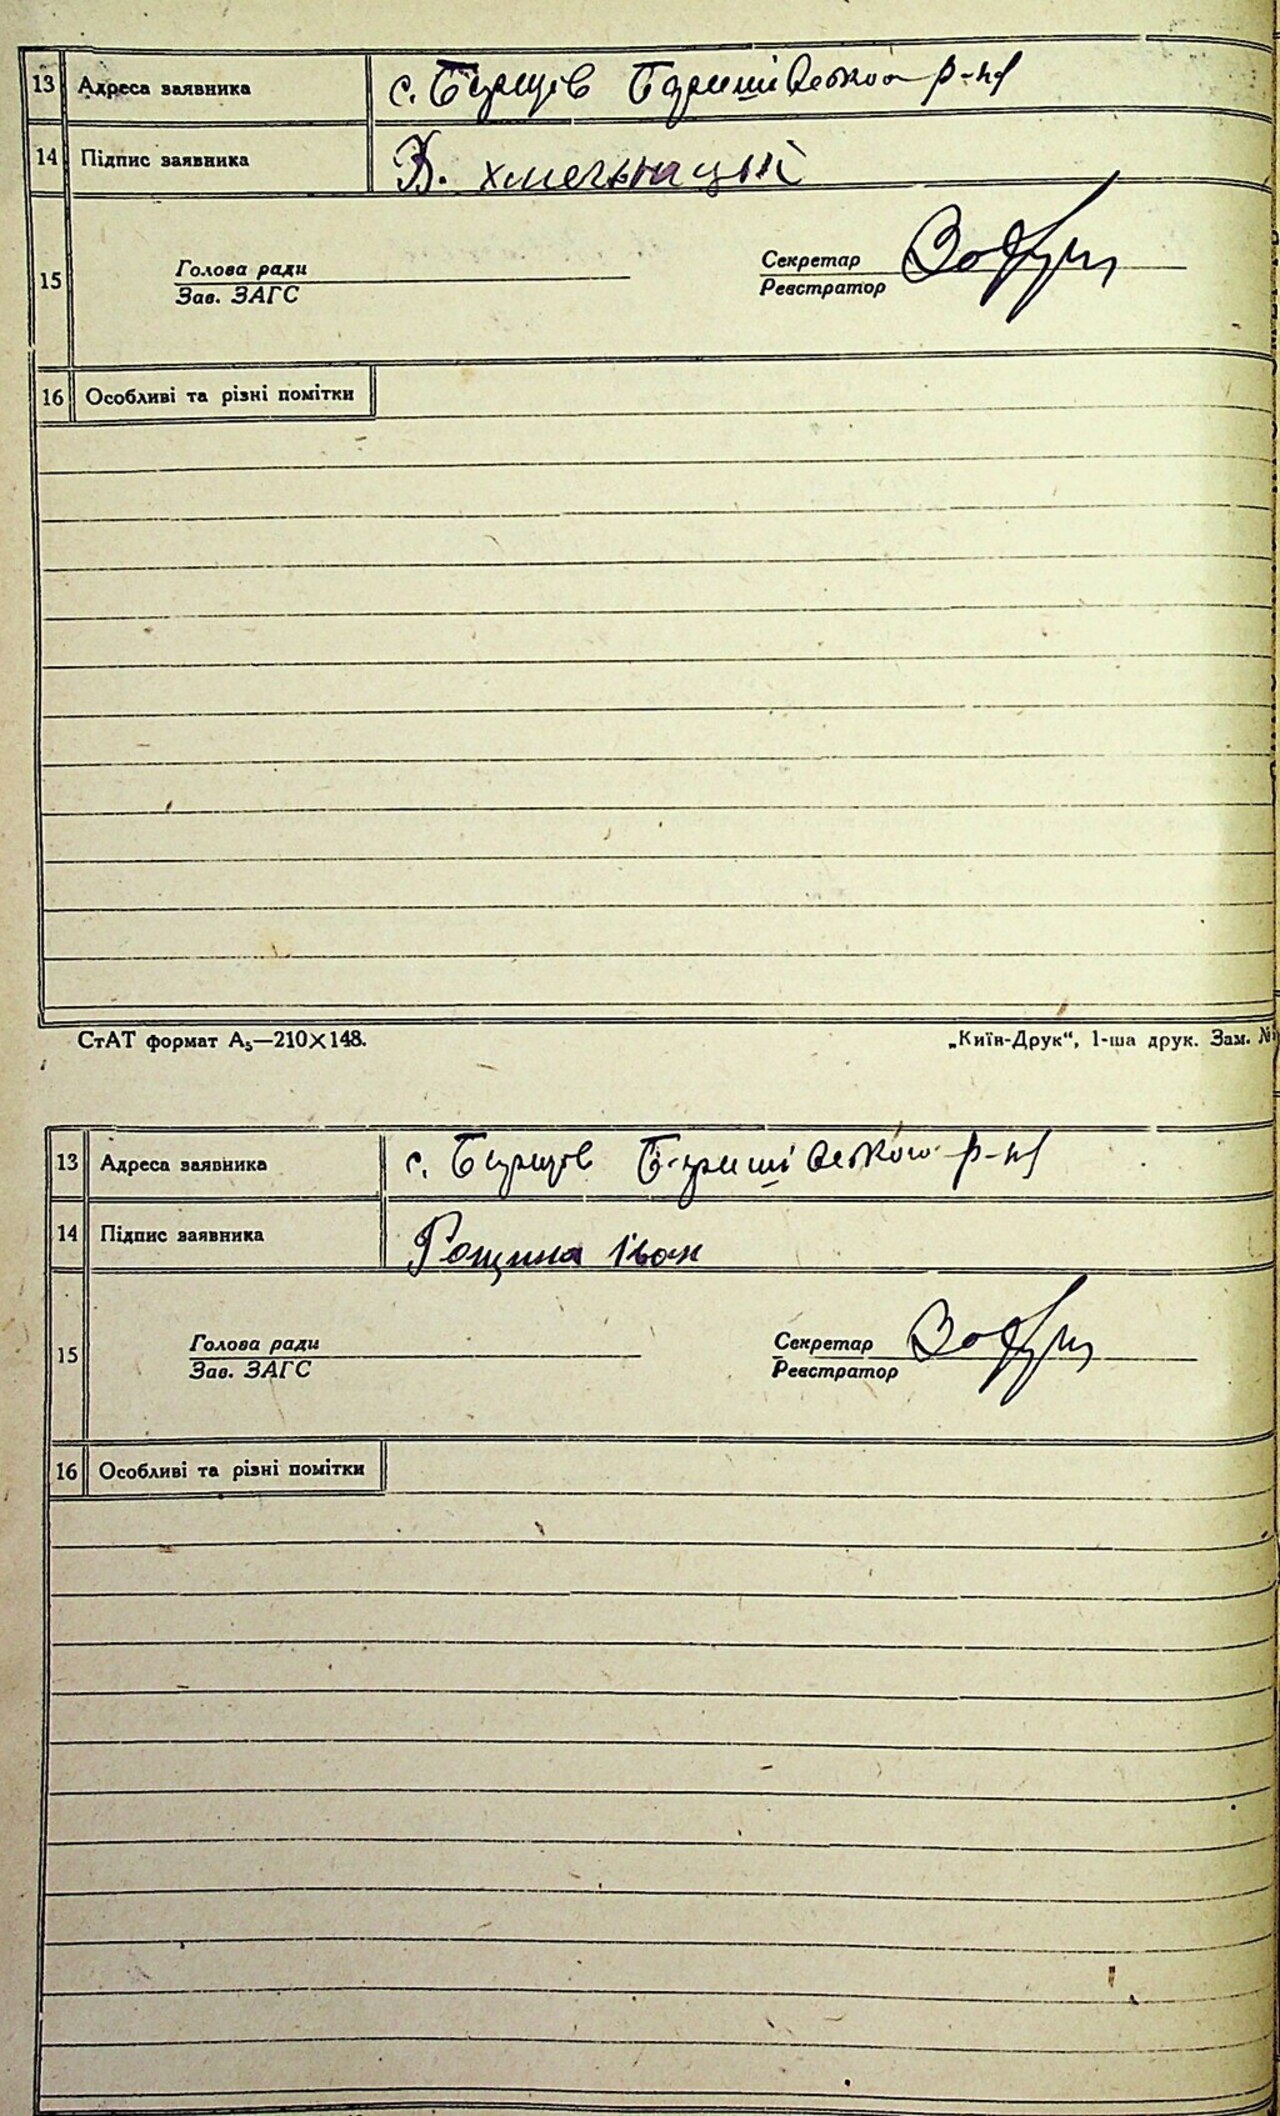 13 Адреса заявника с. Борщів Баришівського р-ну
14 Підпис заявника В. Хмельницький
15 Голова ради
Зав. ЗАГС
Секретар
Реєстратор
16 Особливі та різні помітки
СтАТ формат А₅—210×148.
„Київ-Друк“, 1-ша друк. Зам. №
13 Адреса заявника с. Борщів Баришівського р-ну
14 Підпис заявника Рощина Іван
15 Голова ради
Зав. ЗАГС
Секретар
Реєстратор
16 Особливі та різні помітки